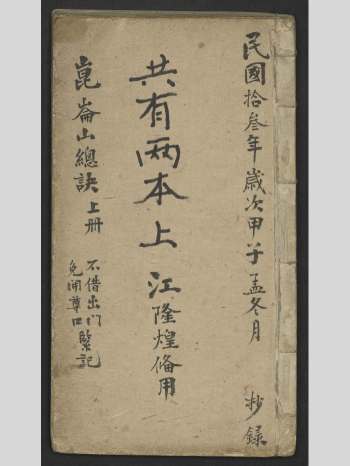 民國拾叁年歲次甲子孟冬月 抄錄
共有兩本上 江隆煌俻用
崑崙山總訣上册
不借出门
免開尊口緊記